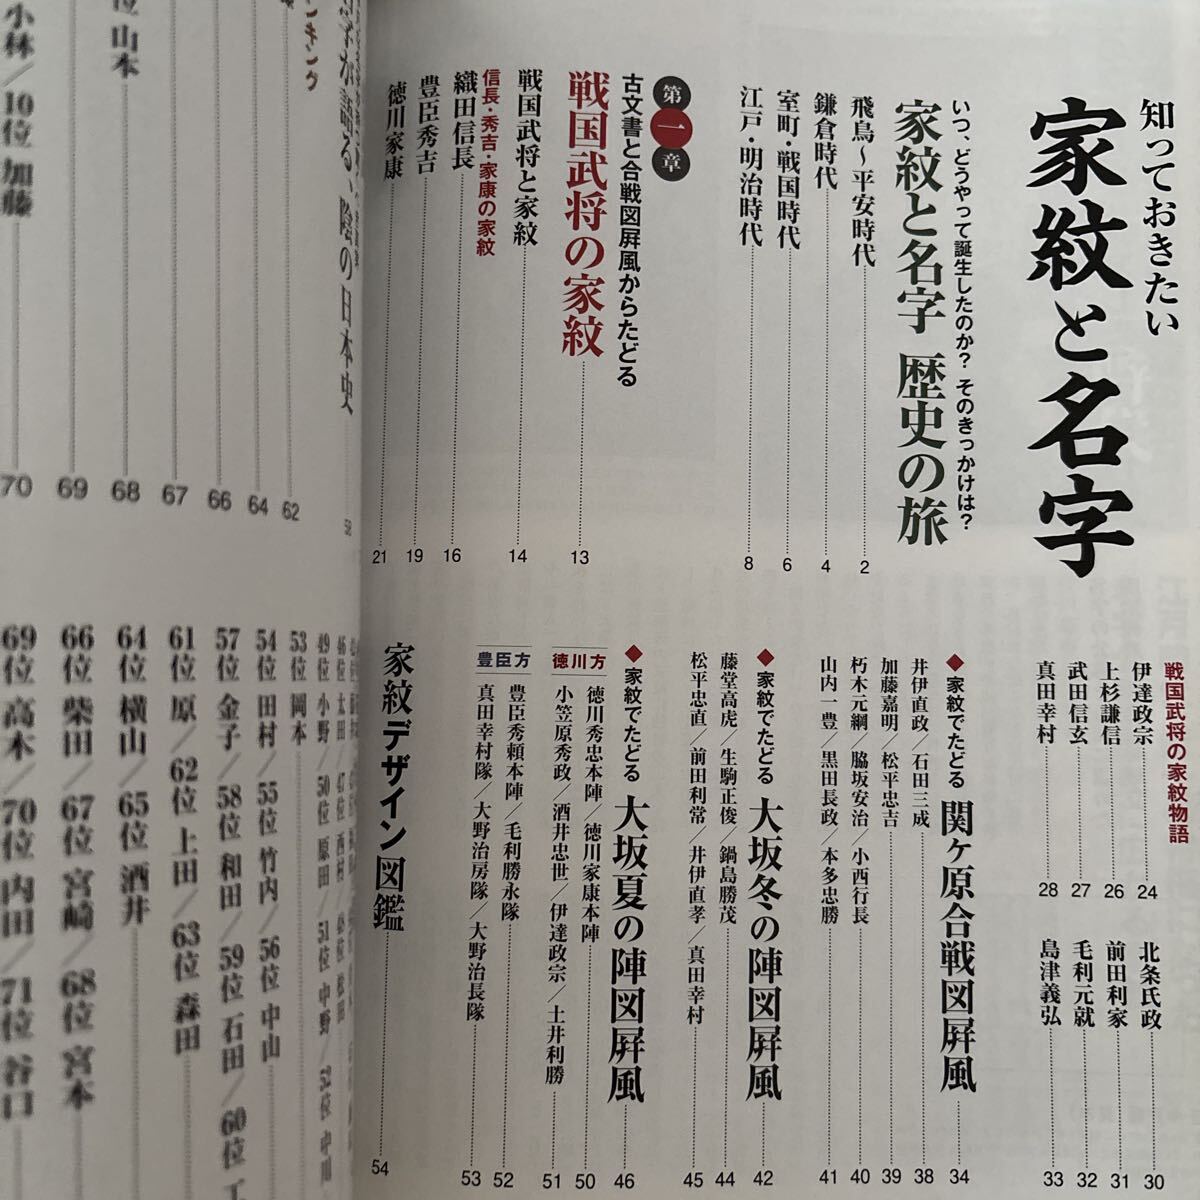 知っておきたい
家紋と名字
いつ、どうやって誕生したのか？ そのきっかけは？
家紋と名字 歴史の旅
飛鳥～平安時代 2
鎌倉時代 4
室町・戦国時代 6
江戸・明治時代 8
第一章
古文書と合戦図屏風からたどる
戦国武将の家紋 13
戦国武将と家紋 14
信長・秀吉・家康の家紋
織田信長 16
豊臣秀吉 19
徳川家康 21
戦国武将の家紋物語
伊達政宗 24
上杉謙信 26
武田信玄 27
真田幸村 28
北条氏政 30
前田利家 31
毛利元就 32
島津義弘 33
◆家紋でたどる 関ヶ原合戦図屏風 34
井伊直政／石田三成 38
加藤嘉明／松平忠吉 39
朽木元綱／脇坂安治／小西行長 40
山内一豊／黒田長政／本多忠勝 41
◆家紋でたどる 大坂冬の陣図屏風 42
藤堂高虎／生駒正俊／鍋島勝茂 44
松平忠直／前田利常／井伊直孝／真田幸村 45
◆家紋でたどる 大坂夏の陣図屏風 46
徳川方
徳川秀忠本陣／徳川家康本陣 50
小笠原秀政／酒井忠世／伊達政宗／土井利勝 51
豊臣方
豊臣秀頼本陣／毛利勝永隊 52
真田幸村隊／大野治房隊／大野治長隊 53
家紋デザイン図鑑 54
が語る、陰の日本史 58
ンキング
62
64
66
67
位 山本 68
69
小林／10位 加藤 70
46位 太田 47位 西村 48位 松田
49位 小野／50位 原田／51位 中野／52位 中川
53位 岡本
54位 田村／55位 竹内／56位 中山
57位 金子／58位 和田／59位 石田／60位
61位 原／62位 上田／63位 森田
64位 横山／65位 酒井
66位 柴田／67位 宮崎／68位 宮本
69位 高木／70位 内田／71位 谷口